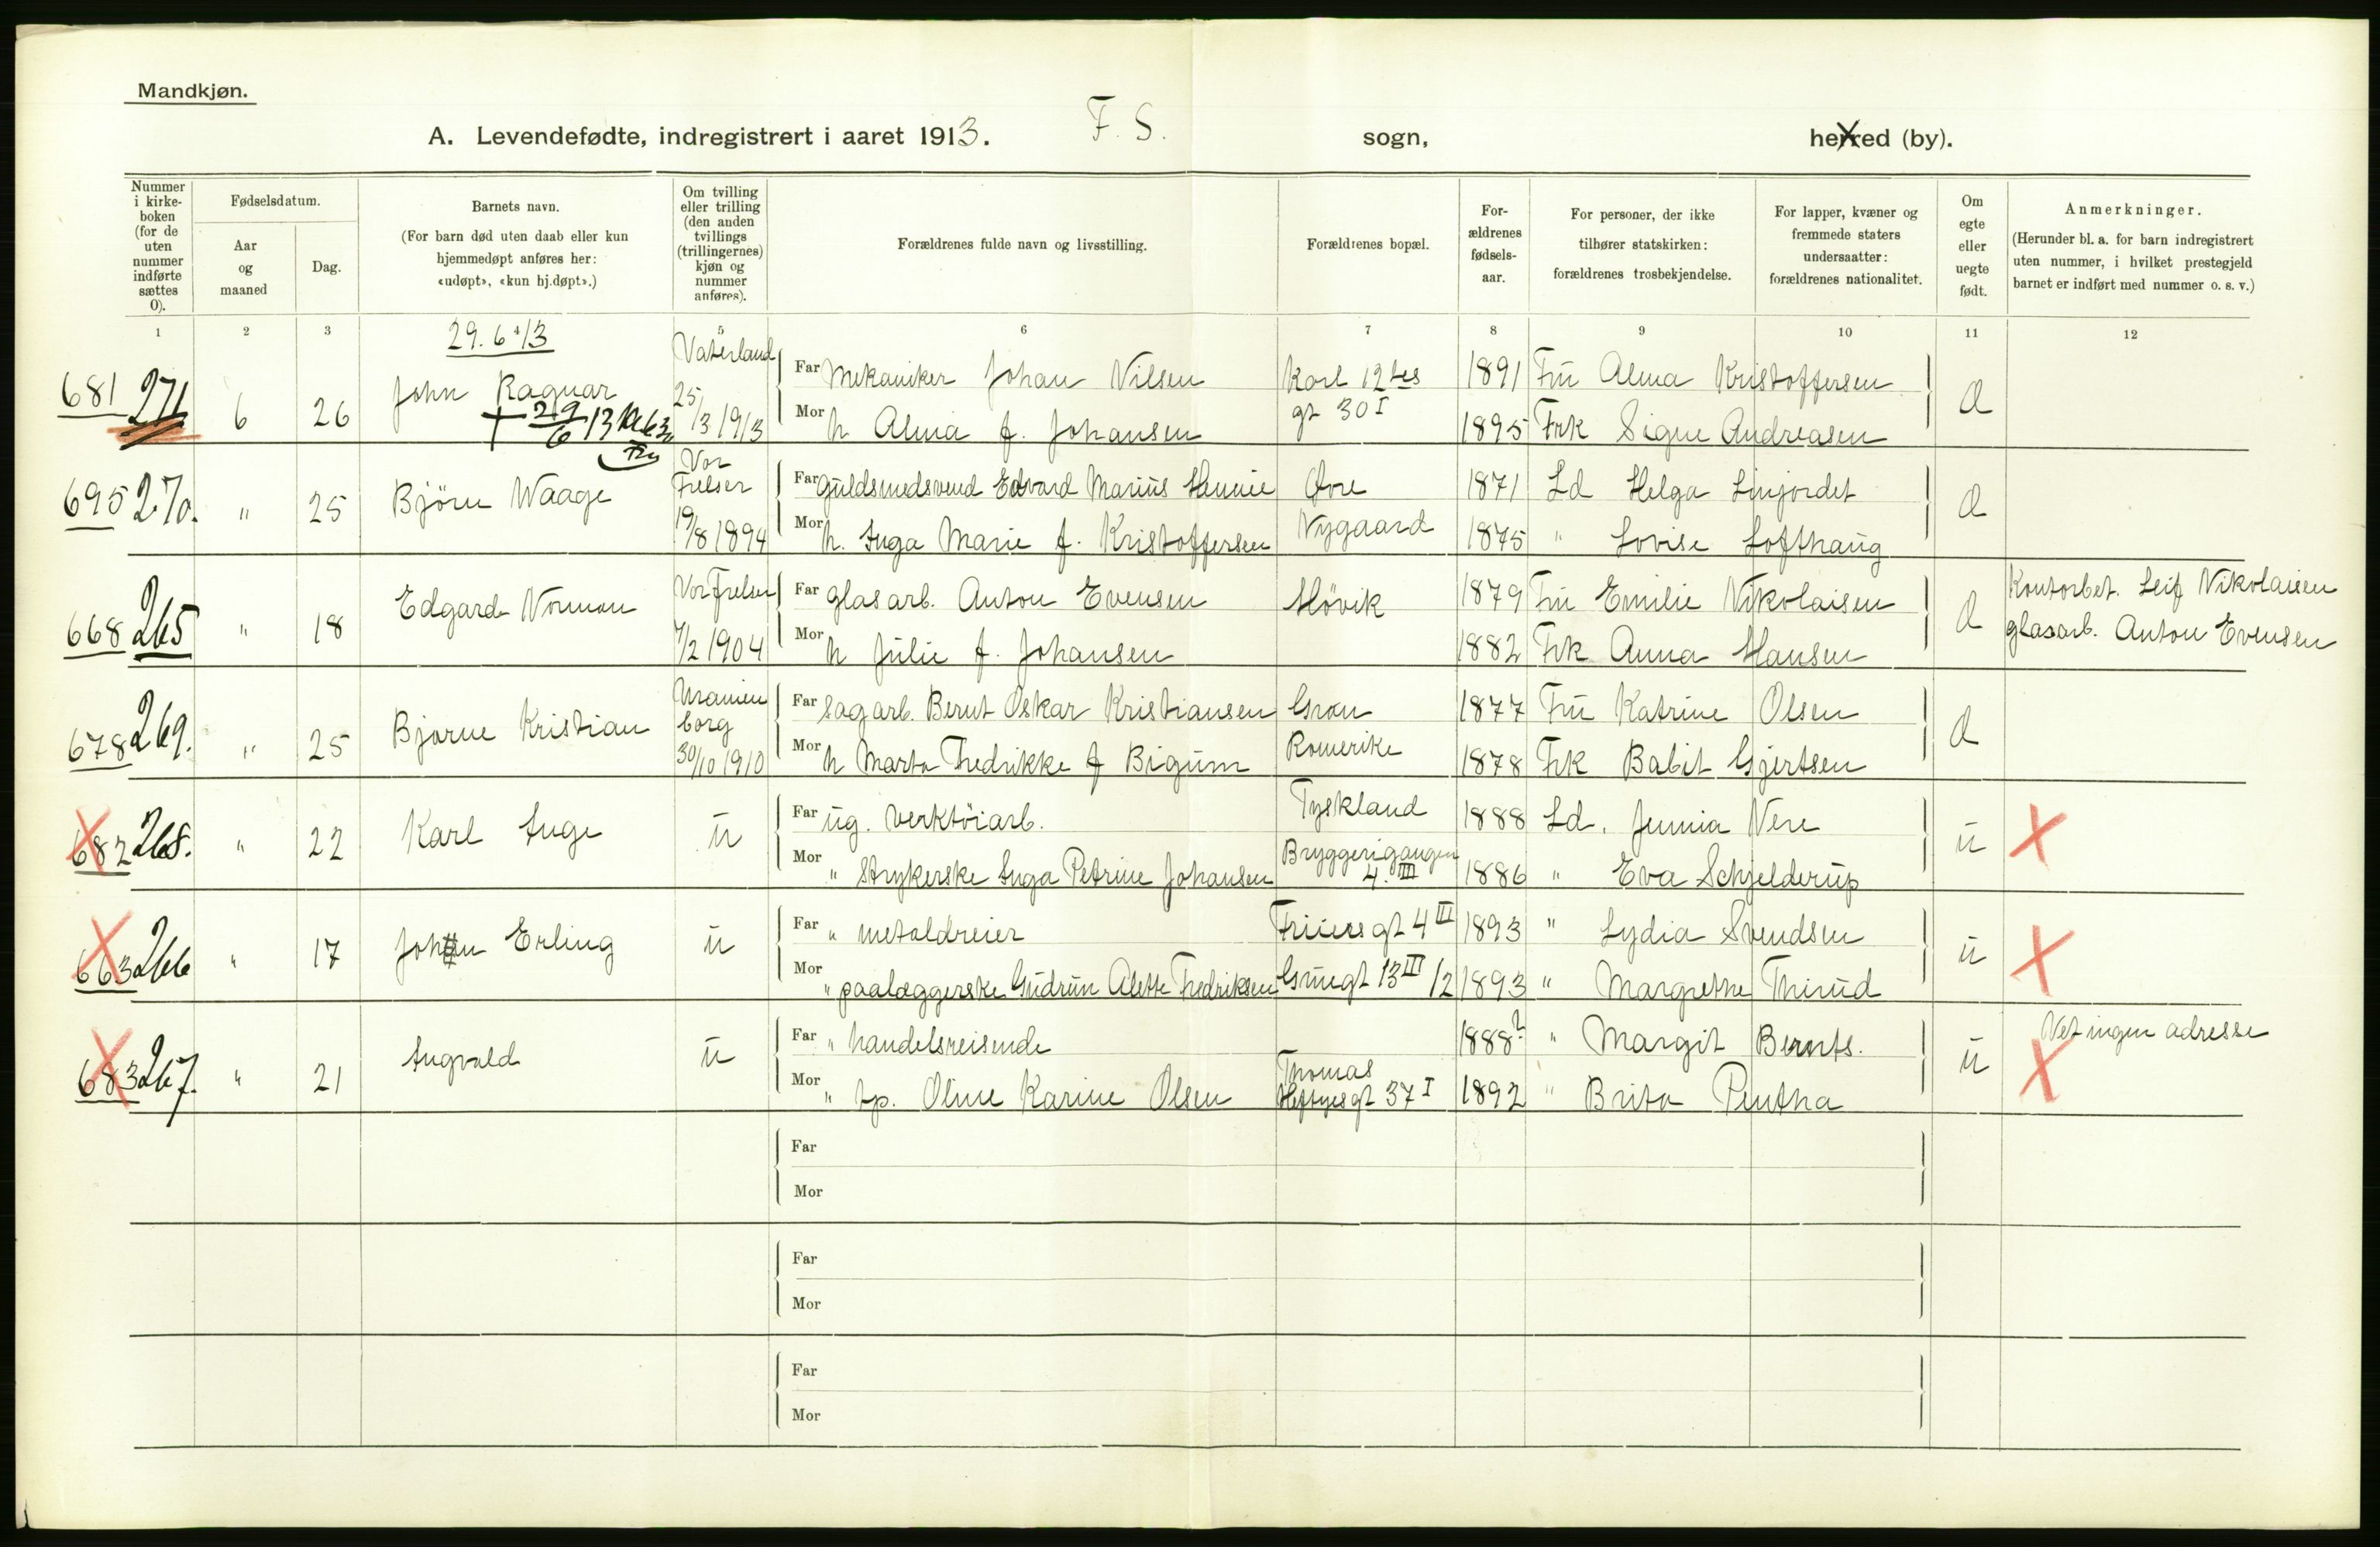 Mandkjøn.
A. Levendefødte, indregistrert i aaret 1913. F. S. sogn, herred (by).
Nummer i kirkeboken (for de uten nummer indførte sættes 0).
Fødselsdatum.
Aar og maaned
Dag.
Barnets navn.
(For barn død uten daab eller kun hjemmedøpt anføres her: «udøpt», «kun hj.døpt».)
Om tvilling eller trilling (den anden tvillings (trillingernes) kjøn og nummer anføres).
Forældrenes fulde navn og livsstilling.
Forældrenes bopæl.
Forældrenes fødselsaar.
For personer, der ikke tilhører statskirken: forældrenes trosbekjendelse.
For lapper, kvæner og fremmede staters undersaatter: forældrenes nationalitet.
Om egte eller uegte født.
Anmerkninger.
(Herunder bl. a. for barn indregistrert uten nummer, i hvilket prestegjeld barnet er indført med nummer o. s. v.)
1 2 3 4 5 6 7 8 9 10 11 12
29. 6 13
681 271 6 26 John Ragnar Vaterland 25/3 1913
† 29/6 13
Far Mekaniker Johan Nilsen Karl 12tes 1891 Fru Alma Kristoffersen
Mor h Alma f. Johansen gt 30 I 1895 Frk Signe Andreasen
695 270. " 25 Bjørn Waage Vor Frelser 19/8 1894
Far Guldsmedsvend Edvard Marius Hennie Øvre 1871 Ld Helga Linjordet
Mor h. Inga Marie f. Kristoffersen Nygaard 1875 " Lovise Lofthaug
668 265 " 18 Edgard Norman Vor Frelser 7/2 1904
Far glasarb. Anton Evensen Høvik 1879 Fru Emilie Nikolaisen
Mor h Julie f. Johansen 1882 Frk Anna Hansen
Kontorbet. Leif Nikolaisen
glasarb. Anton Evensen
678 269. " 25 Bjarne Kristian Uranienborg 30/10 1910
Far sagarb. Bernt Oskar Kristiansen Gran 1877 Fru Katrine Olsen
Mor h Marta Fredrikke f Bigum Romerike 1878 Frk Babit Gjertsen
682 268. " 22 Karl Inge u
Far ug. verktøiarb. Tyskland 1888 Ld. Jennia Vere u
Mor " strykerske Inga Petrine Johansen Bryggerigangen 4. III 1886 " Eva Schjelderup
663 266 " 17 Johan Erling u
Far " metaldreier Friers gt 4 III 1893 " Lydia Svendsen u
Mor " paalæggerske Gudrun Alette Fredriksen 13 III 1/2 1893 " Margrethe Thirud
683 267. " 21 Ingvald u
Far " handelsreisende 1888? " Margit Bernts. u
Vet ingen adresse
Mor " tp. Oline Karine Olsen Thomas Heftyesgt 37 I 1892 " Brita Pentha
Far
Mor
Far
Mor
Far
Mor